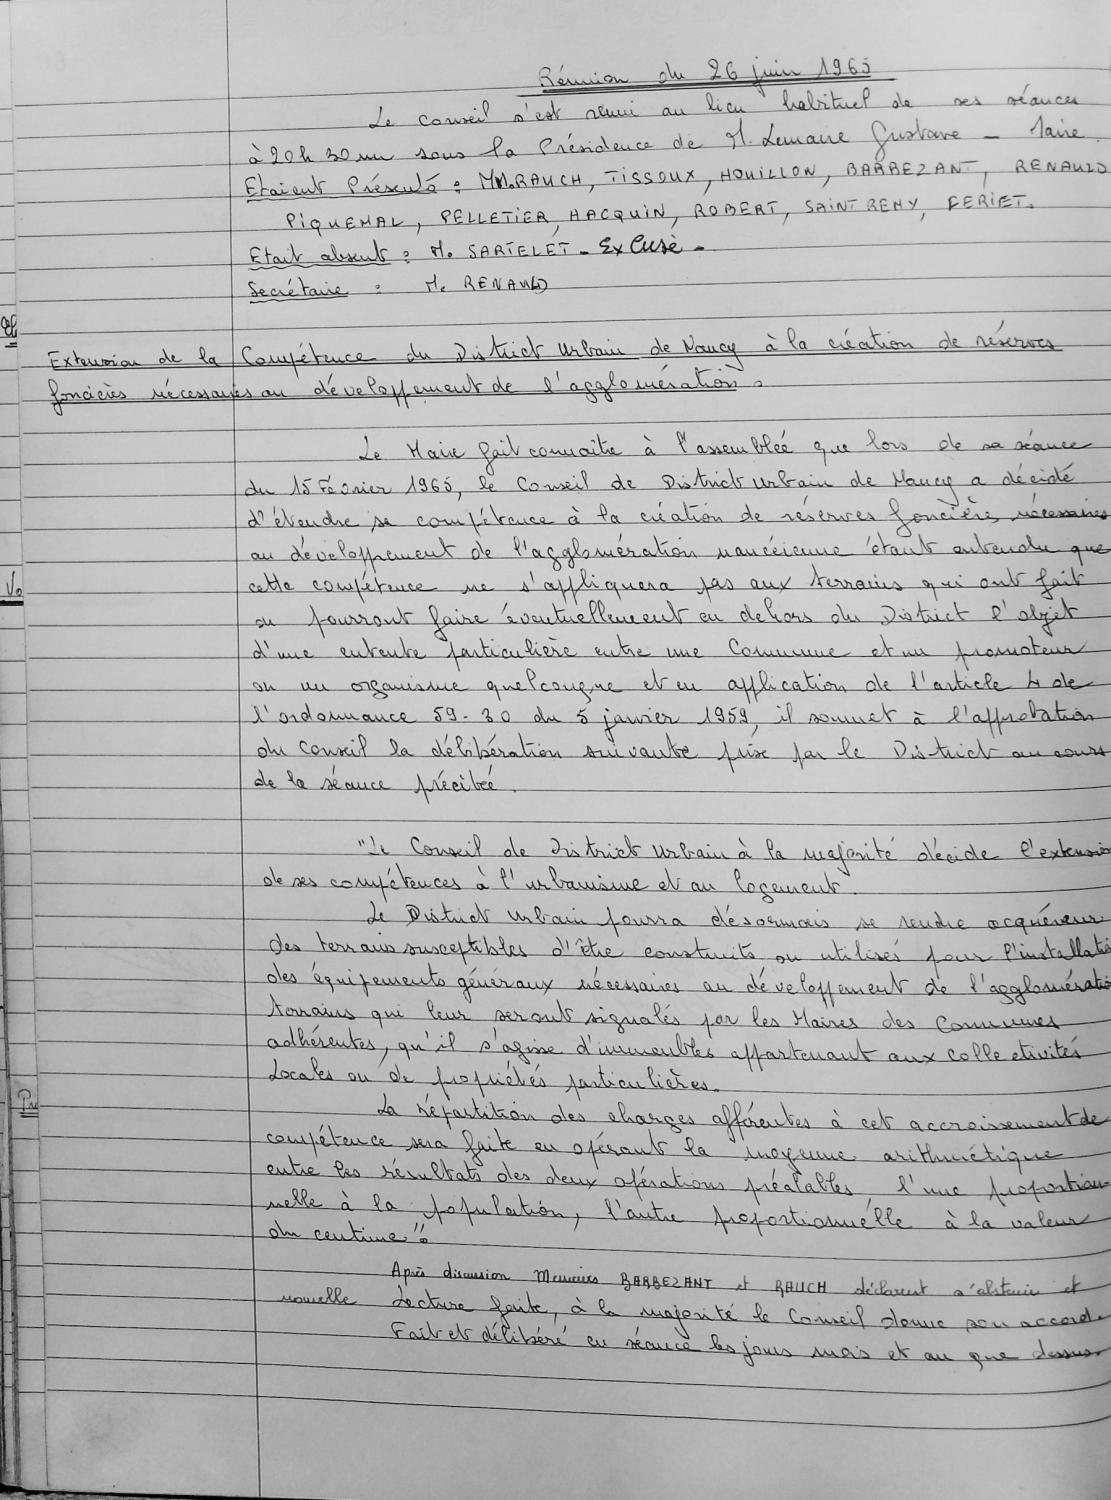 Réunion du 26 juin 1965
Le Conseil s'est réuni au lieu habituel de ses séances
à 20h 30mn sous la Présidence de M. Lemaire Gustave - Maire
Etaient Présents : MM. RAUCH, TISSOUX, HOUILLON, BARBEZANT, RENAULD
PIQUEMAL, PELLETIER, HACQUIN, ROBERT, SAINT REMY, FERIET.
Etait absent : M. SARTELET - Excusé -
Secrétaire : M. RENAULD
Extension de la Compétence du District Urbain de Nancy à la création de réserves
foncières nécessaires au développement de l'agglomération.
Le Maire fait connaître à l'assemblée que lors de sa séance
du 15 Février 1965, le Conseil de District Urbain de Nancy a décidé
d'étendre sa compétence à la création de réserves foncières nécessaires
au développement de l'agglomération nancéienne étant entendu que
Vo
cette compétence ne s'appliquera pas aux terrains qui ont fait
ou pourront faire éventuellement en dehors du District l'objet
d'une entente particulière entre une Commune et un promoteur
ou un organisme quelconque et en application de l'article 4 de
l'ordonnance 59-30 du 5 janvier 1959, il soumet à l'approbation
du Conseil la délibération suivante prise par le District au cours
de la séance précitée.
"Le Conseil de District Urbain à la majorité décide l'extension
de ses compétences à l'urbanisme et au logement.
Le District Urbain pourra désormais se rendre acquéreur
des terrains susceptibles d'être construits ou utilisés pour l'installatio
des équipements généraux nécessaires au développement de l'agglomératio
terrains qui leur seront signalés par les Maires des Communes
adhérentes, qu'il s'agisse d'immeubles appartenant aux Collectivités
Locales ou de propriétés particulières.
La répartition des charges afférentes à cet accroissement de
compétence sera faite en opérant la moyenne arithmétique
entre les résultats des deux opérations préalables l'une proportion-
nelle à la population, l'autre proportionnelle à la valeur
du centime".
Après discussion Messieurs BARBEZANT et RAUCH déclarent s'abstenir et
nouvelle Lecture faite, à la majorité le Conseil donne son accord.
Fait et délibéré en séance les jours mois et an que dessus.